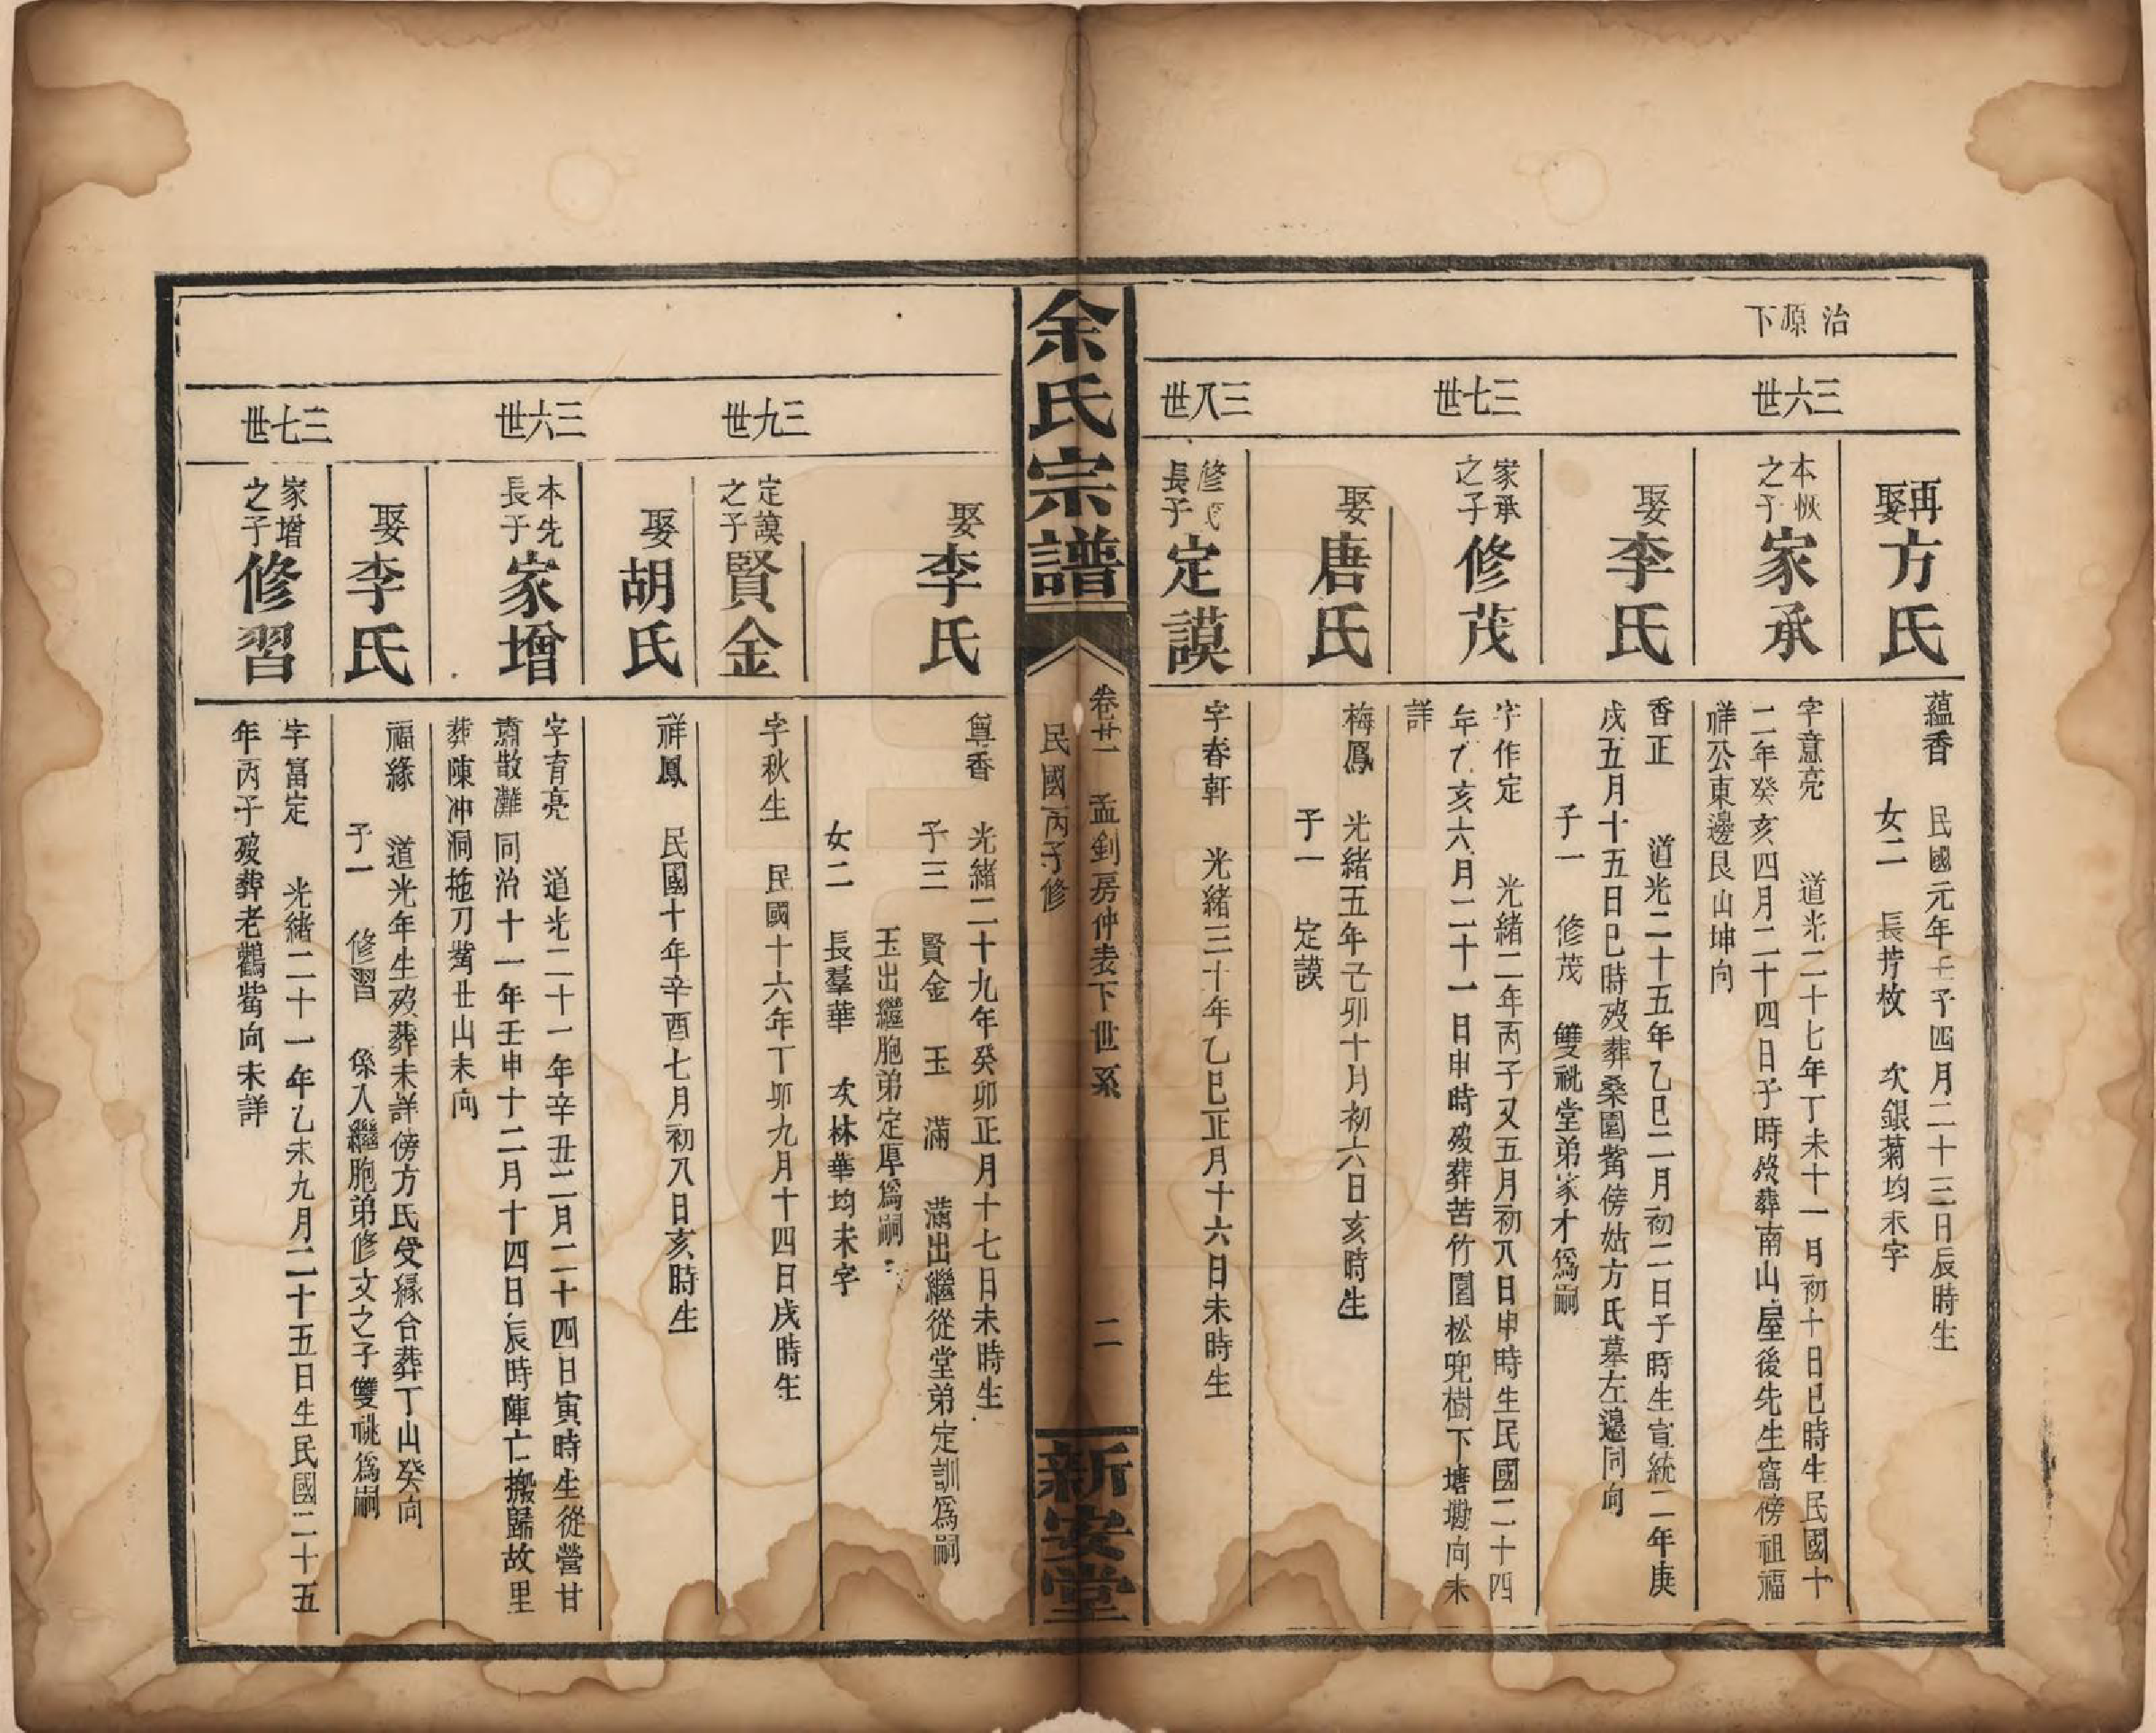 治
源
下
三六世
三七世
三八世
再娶
方氏
蘊香 民國元年壬子四月二十三日辰時生
女二 長芋枚 次銀菊均未字
本恢之子
家承
字意亮 道光二十七年丁未十一月初十日巳時生民國十
二年癸亥四月二十四日子時歿葬南山屋後先生窩傍祖福
祥公東邊艮山坤向
娶
李氏
香正 道光二十五年乙巳二月初二日子時生宣統二年庚
戌五月十五日巳時歿葬桑園觜傍姑方氏墓左邊同向
子一 修茂 雙祧堂弟家才爲嗣
家承之子
修茂
字作定 光緒二年丙子又五月初八日申時生民國二十四
年乙亥六月二十一日申時歿葬苦竹園松兜樹下塘墈向未
詳
娶
唐氏
梅鳳 光緒五年己卯十月初六日亥時生
子一 定謨
修茂長子
定謨
字春軒 光緒三十年乙巳正月十六日未時生
余氏宗譜
卷廿一 孟釗房仲表下世系 二
民國丙子修
新安堂
三九世
三六世
三七世
娶
李氏
尊香 光緒二十九年癸卯正月十七日未時生
子三 賢金 玉 滿 滿出繼從堂弟定訓爲嗣
玉出繼胞弟定厚爲嗣
女二 長羣華 次林華均未字
定謨之子
賢金
字秋生 民國十六年丁卯九月十四日戌時生
娶
胡氏
祥鳳 民國十年辛酉七月初八日亥時生
本先長子
家增
字育亮 道光二十一年辛丑二月二十四日寅時生從營甘
肅散灘同治十一年壬申十二月十四日辰時陣亡搬歸故里
葬陳冲洞拖刀觜丑山未向
娶
李氏
福緣 道光年生歿葬未詳傍方氏受緣合葬丁山癸向
子一 修習 係入繼胞弟修文之子雙祧爲嗣
家增之子
修習
字富定 光緒二十一年乙未九月二十五日生民國二十五
年丙子歿葬老鸛觜向未詳